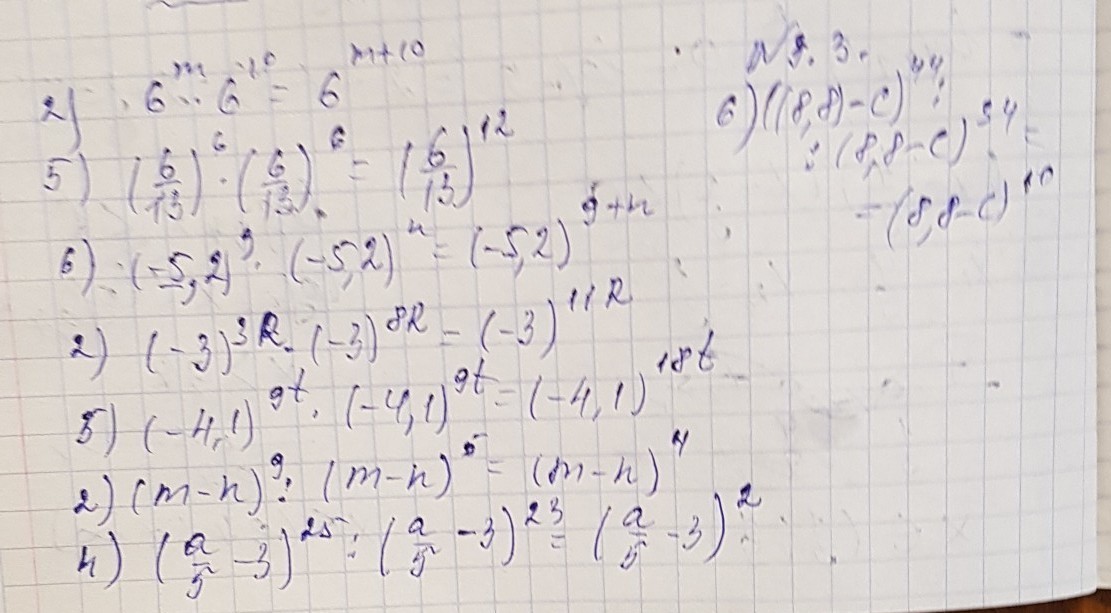 2) 6^m · 6^10 = 6^(m+10)
5) (6/13)^6 · (6/13)^6 = (6/13)^12
6) (-5,2)^9 · (-5,2)^n = (-5,2)^(9+n)
2) (-3)^(3k) · (-3)^(8k) = (-3)^(11k)
5) (-4,1)^(9t) · (-4,1)^(9t) = (-4,1)^(18t)
2) (m-n)^9 : (m-n)^5 = (m-n)^4
4) (a/5 - 3)^25 : (a/5 - 3)^23 = (a/5 - 3)^2
№ 9. 3.
6) ((8,8)-c)^44 :
: (8,8-c)^34 =
= (8,8-c)^10